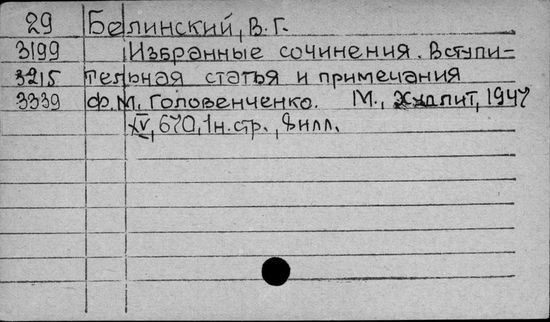 29 Белинский, В. Г.
3199 Избранные сочинения. Вступи-
3215 тельная статья и примечания
3339 Ф.М. Головенченко. М., Худлит, 1947
XV, 670, 1н. стр., 8 илл.